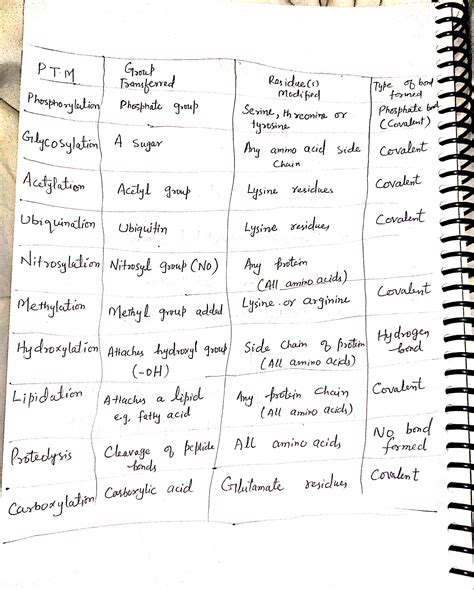 P T M
Group Transferred
Residue(s) Modified
Type of bond formed
Phosphorylation
Phosphate group
Serine, threonine or tyrosine
Phosphate bond (Covalent)
Glycosylation
A sugar
Any amino acid side chain
Covalent
Acetylation
Acetyl group
Lysine residues
Covalent
Ubiquination
Ubiquitin
Lysine residues
Covalent
Nitrosylation
Nitrosyl group (NO)
Any protein (All amino acids)
Methylation
Methyl group added
Lysine or arginine
Covalent
Hydroxylation
Attaches hydroxyl group (-OH)
Side chain of protein (All amino acids)
Hydrogen bond
Lipidation
Attaches a lipid e.g. fatty acid
Any protein chain (All amino acids)
Covalent
Proteolysis
Cleavage of peptide bonds
All amino acids
No bond formed
Carboxylation
Carboxylic acid
Glutamate residues
Covalent